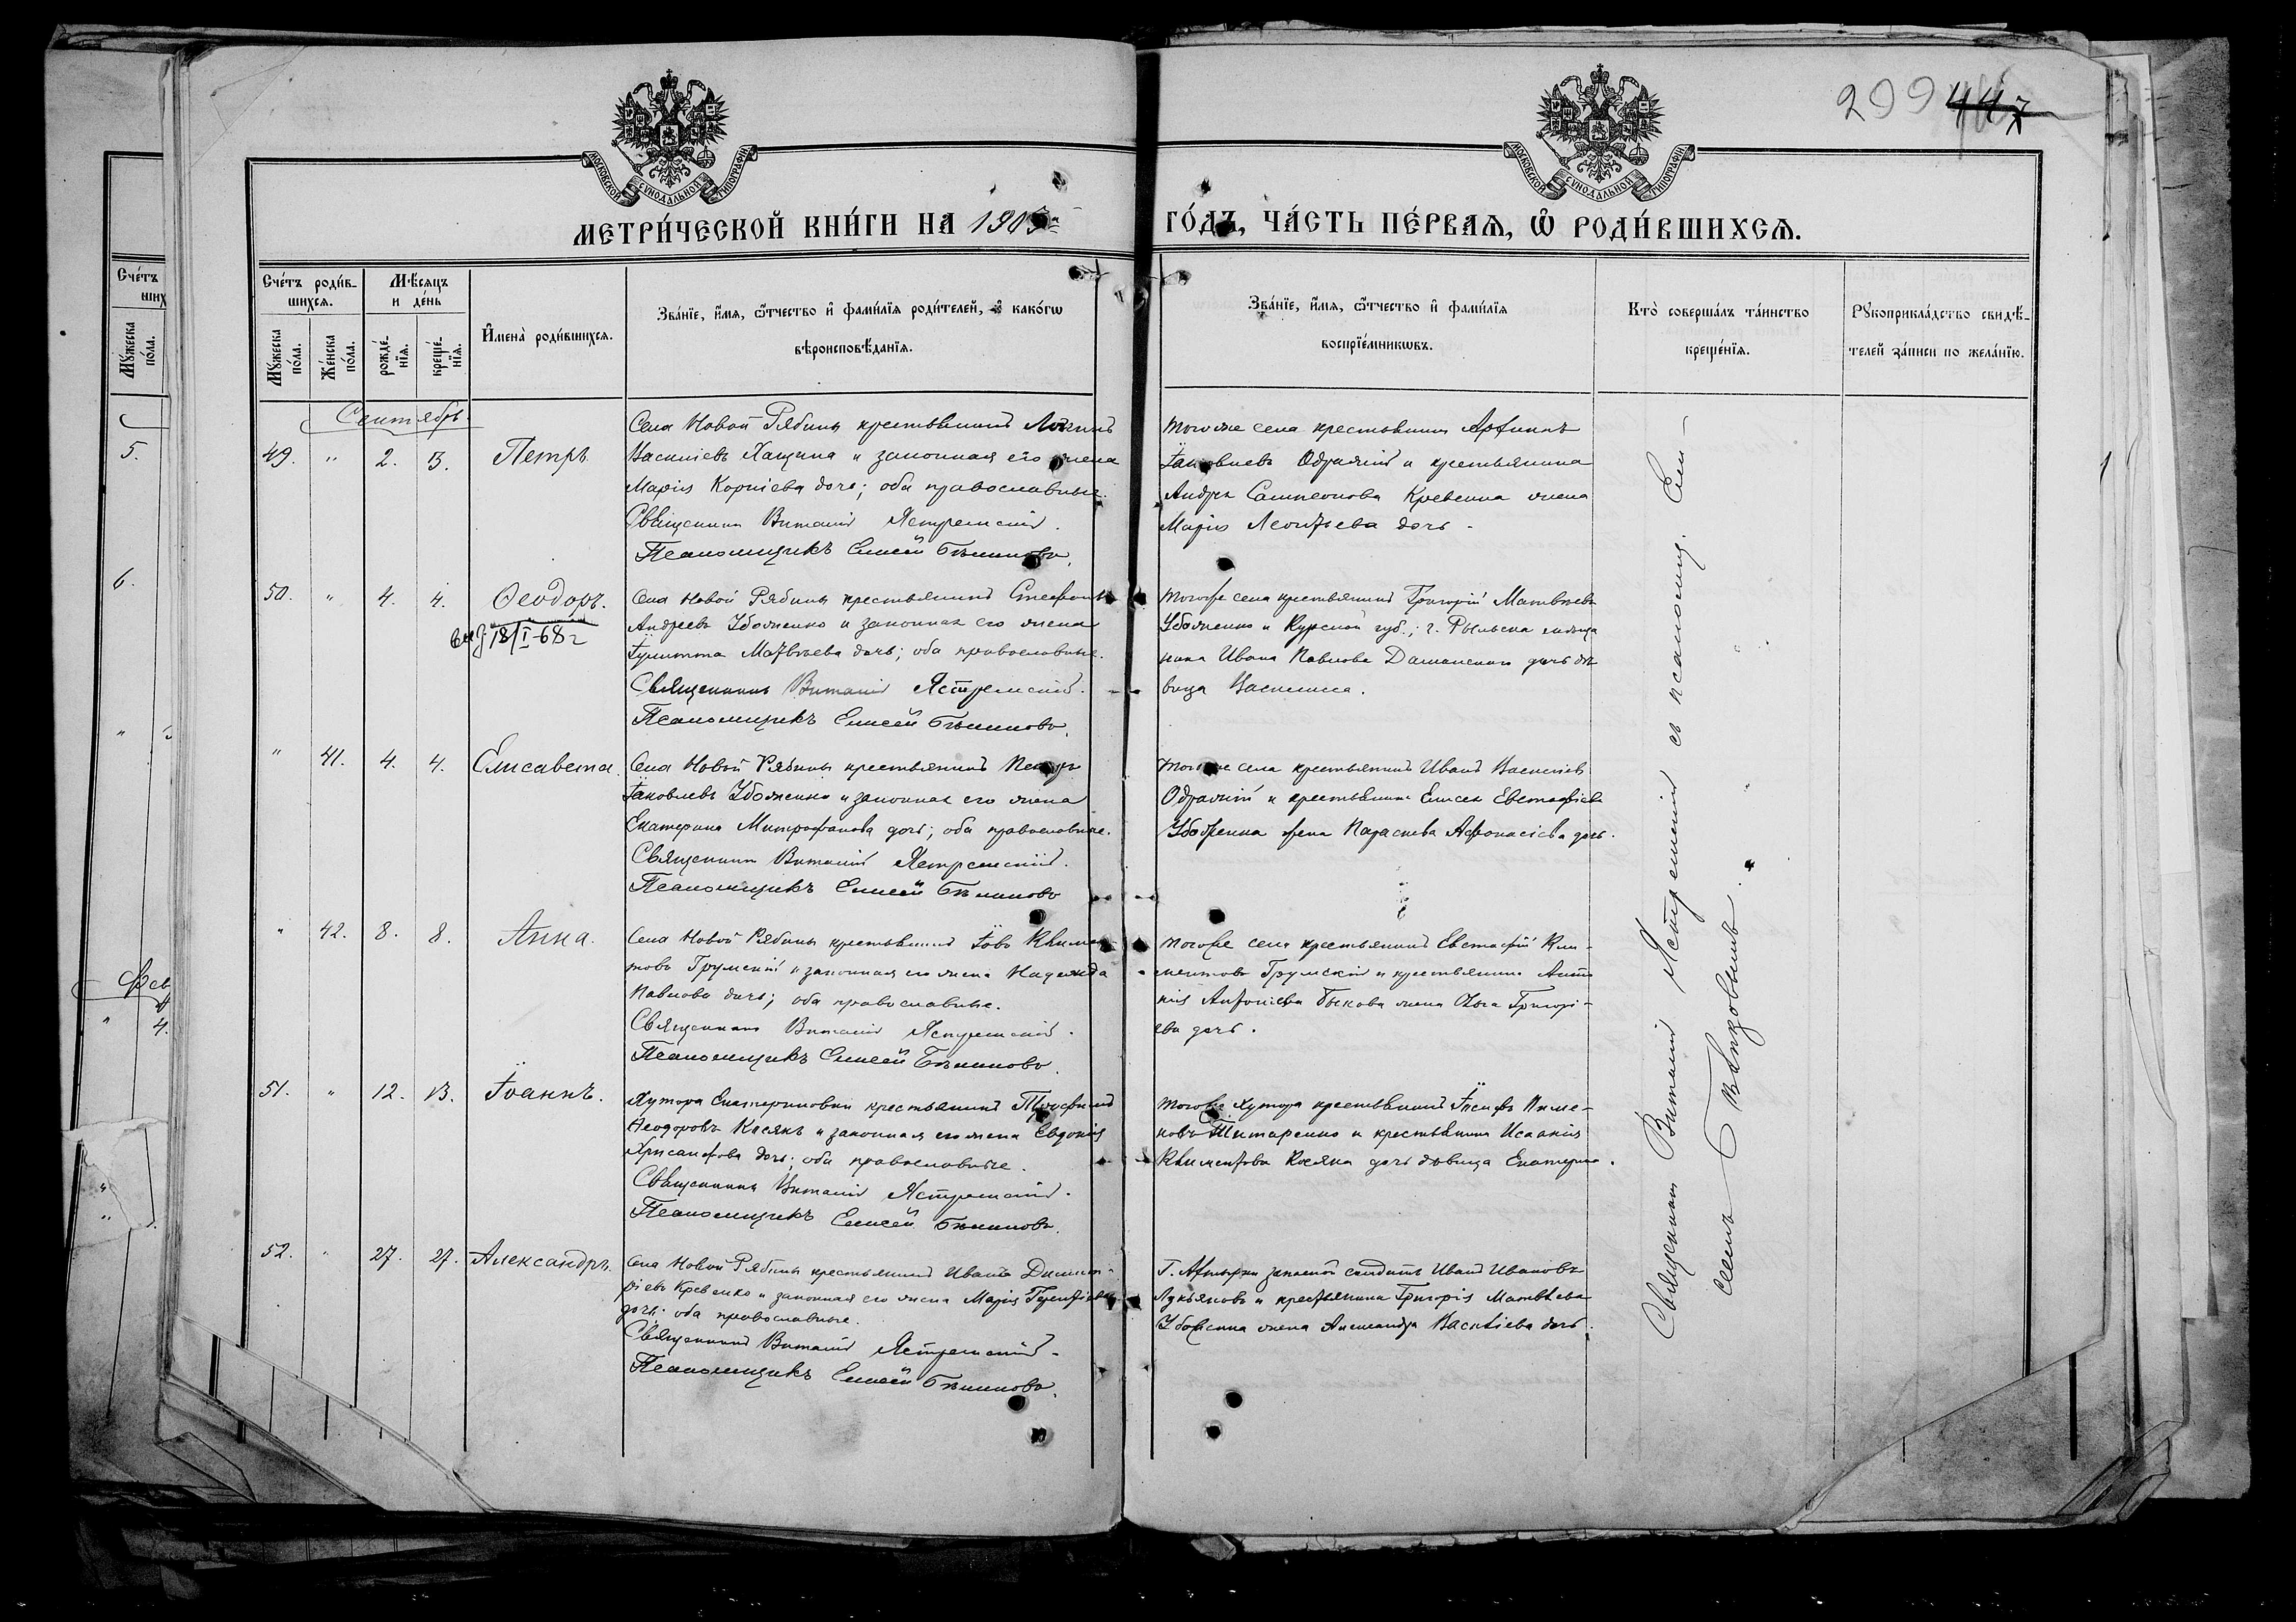 299 447
МОСКОВСКОЙ СѴНОДАЛЬНОЙ ТИПОГРАФИИ
МОСКОВСКОЙ СѴНОДАЛЬНОЙ ТИПОГРАФИИ
МЕТРИ́ЧЕСКОЙ КНИ́ГИ НА 1905й
ГО́ДЪ, ЧА́СТЬ ПЕ́РВАѦ, Ѽ РОДИ́ВШИХСѦ.
Сче́тъ
ших
Мꙋ́жеска по́ла.
Сче́тъ роди́в-
шихсѧ.
Мꙋ́жеска по́ла.
Же́нска по́ла.
Мѣ́сѧцъ
и де́нь
рожде́нїѧ.
креще́нїѧ.
И҆мена̀ роди́вшихсѧ.
Зва́нїе, и҆́мѧ, ѻ҆́тчество и҆ фами́лїѧ роди́телей, и҆ како́гѡ
вѣроисповѣ́данїѧ.
Зва́нїе, и҆́мѧ, ѻ҆́тчество и҆ фами́лїѧ
воспрїе́мникѡвъ.
Кто̀ соверша́лъ та́инство
креще́нїѧ.
Рꙋкоприкла́дство свидѣ́-
телей за́писи по жела́нїю.
5.
6.
Фев
4.
Сентябрь
49. " 2. 13. Петръ
Села Новой Рябины крестьянинъ Логинъ
Василіевъ Хащина и законная его жена
Марія Корніева дочь; оба православные.
Священникъ Виталій Ястремскій.
Псаломщикъ Елисей Бѣликовъ.
Тогоже села крестьянинъ
Іаковлевъ Одрахній и крестьянина
Андрея Сампсонова Кревенка жена
Марія Леонтьева дочь.
50. " 4. 4. Ѳеодоръ.
18/I-68г
Села Новой Рябины крестьянинъ Стефанъ
Андреевъ Убоженко и законная его жена
Іулитта Матвѣева дочь; оба православные.
Священникъ Виталій Ястремскій.
Псаломщикъ Елисей Бѣликовъ.
Тогоже села крестьянинъ Григорій Матвѣевъ
Убоженко и Курской губ.; г. Рыльска мѣща
нина Ивана Павлова дочь дѣ
вица Василиса.
" 41. 4. 4. Елисавета.
Села Новой Рябины крестьянинъ Петръ
Іаковлевъ Убоженко и законная его жена
Екатерина Митрофанова дочь; оба православные.
Священникъ Виталій Ястремскій.
Псаломщикъ Елисей Бѣликовъ
Тогоже села крестьянинъ Иванъ Василіевъ
Одрахній и крестьянина Елисея Евстафіева
Убоженка жена Параскева Аѳанасіева дочь.
" 42. 8. 8. Анна.
Села Новой Рябины крестьянинъ Іовъ Климен
товъ Грумскій и законная его жена Надежда
Павлова дочь; оба православные.
Священникъ Виталій Ястремскій.
Псаломщикъ Елисей Бѣликовъ.
Тогоже села крестьянинъ Евстафій Кли-
ментовъ Грумскій и крестьянина Анто
нія Антоніева Быкова жена Ольга Григорі-
ева дочь.
51. " 12. 13. Іоаннъ.
Хутора Екатериновки крестьянинъ Трофимъ
Ѳеодоровъ Касянъ и законная его жена Евдокія
Хрисанфова дочь; оба православные.
Священникъ Виталій Ястремскій.
Псаломщикъ Елисей Бѣликовъ.
Тогоже хутора крестьянинъ Іосифъ Пиме-
новъ Титаренко и крестьянина Исаакія
Климентова Касяна дочь дѣвица Екатерина.
52. " 27. 27. Александръ.
Села Новой Рябины крестьянинъ Иванъ Димит-
ріевъ Кревенко и законная его жена Марія Терентіева
дочь; оба православные.
Священникъ Виталій Ястремскій.
Псаломщикъ Елисей Бѣликовъ.
Г. Ахтырки запасной солдатъ Иванъ Ивановъ
Лукьяновъ и крестьянина Григорія Матвѣева
Убоженка жена Александра Василіева дочь.
Священникъ Виталій Ястремскій съ псаломщ. Ели-
сеемъ Бѣликовымъ.